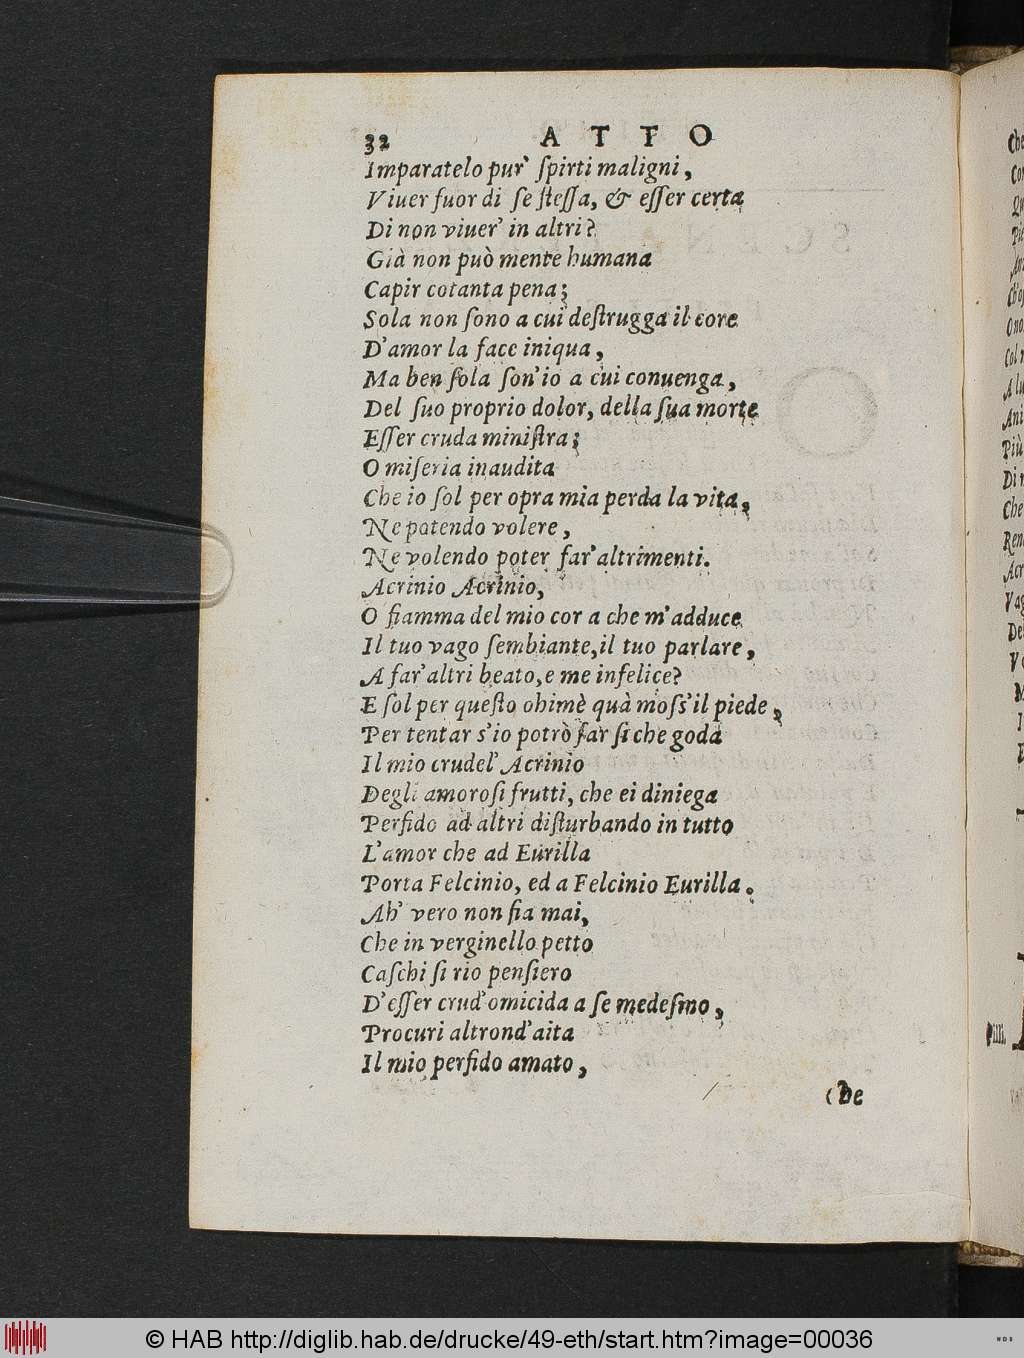 32 ATTO
Imparatelo pur' ſpirti maligni,
Viuer fuor di ſe ſteſſa, & eſſer certa
Di non viuer' in altri?
Già non può mente humana
Capir cotanta pena;
Sola non ſono a cui deſtrugga il core
D'amor la face iniqua,
Ma ben ſola ſon'io a cui conuenga,
Del ſuo proprio dolor, della ſua morte
Eſſer cruda miniſtra;
O miſeria inaudita
Che io ſol per opra mia perda la vita,
Ne potendo volere,
Ne volendo poter far'altrimenti.
Acrinio Acrinio,
O fiamma del mio cor a che m'adduce
Il tuo vago ſembiante, il tuo parlare,
A far'altri beato, e me infelice?
E ſol per queſto ohimè quà moſs'il piede,
Per tentar s'io potrò far ſi che goda
Il mio crudel' Acrinio
Degli amoroſi frutti, che ei diniega
Perfido ad altri diſturbando in tutto
L'amor che ad Eurilla
Porta Felcinio, ed a Felcinio Eurilla.
Ah' vero non fia mai,
Che in verginello petto
Caſchi ſi rio penſiero
D'eſſer crud'omicida a ſe medeſmo,
Procuri altrond'aita
Il mio perfido amato,
Che
© HAB http://diglib.hab.de/drucke/49-eth/start.htm?image=00036